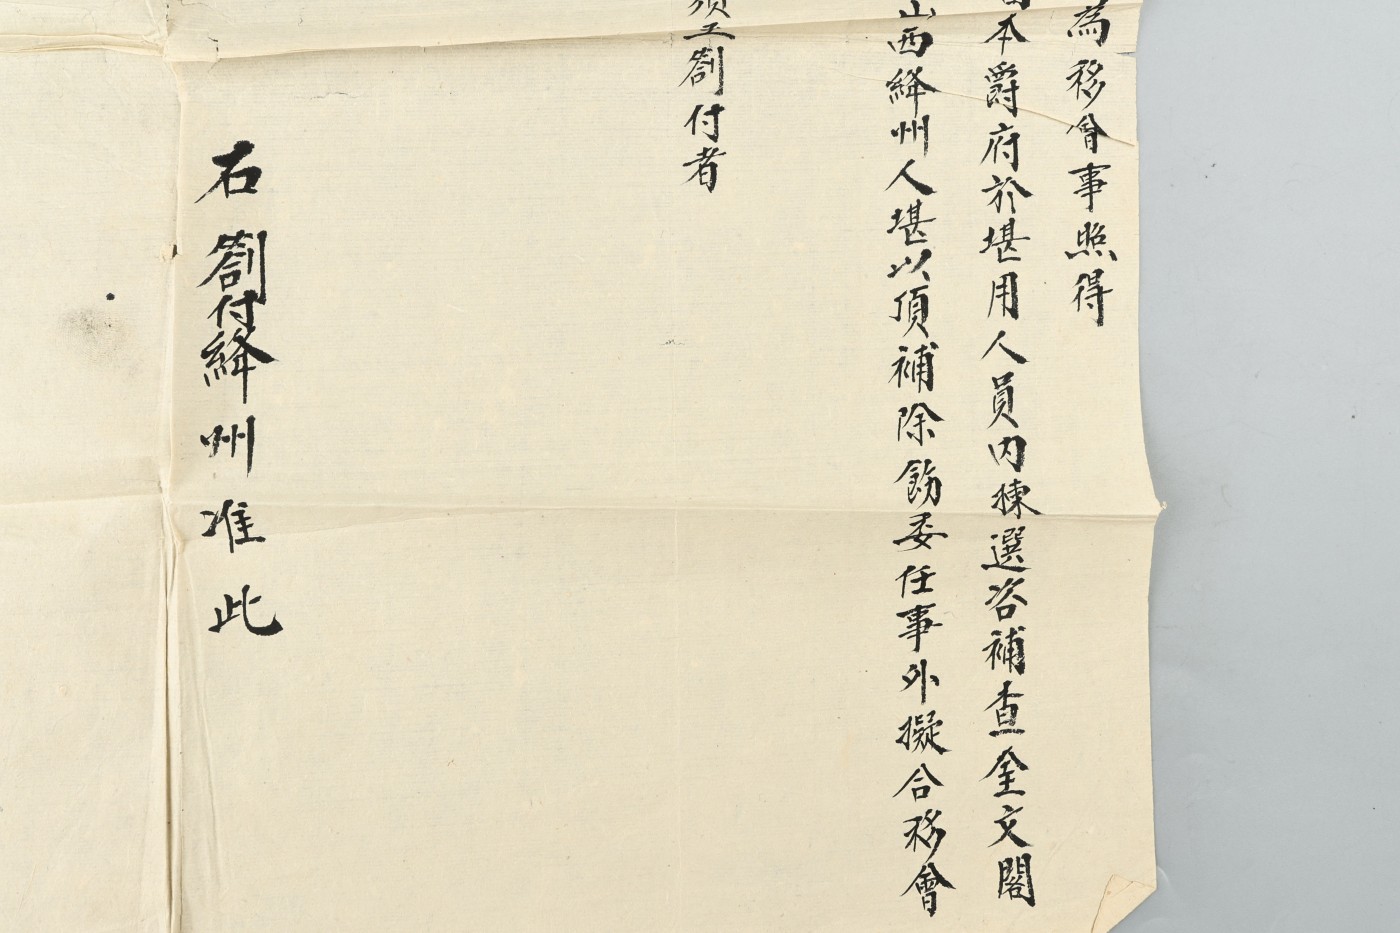 為移會事照得
本爵府於堪用人員內揀選咨補查全文閣
山西絳州人堪以頂補除飭委任事外擬合移會
須至劄付者
右劄付絳州准此